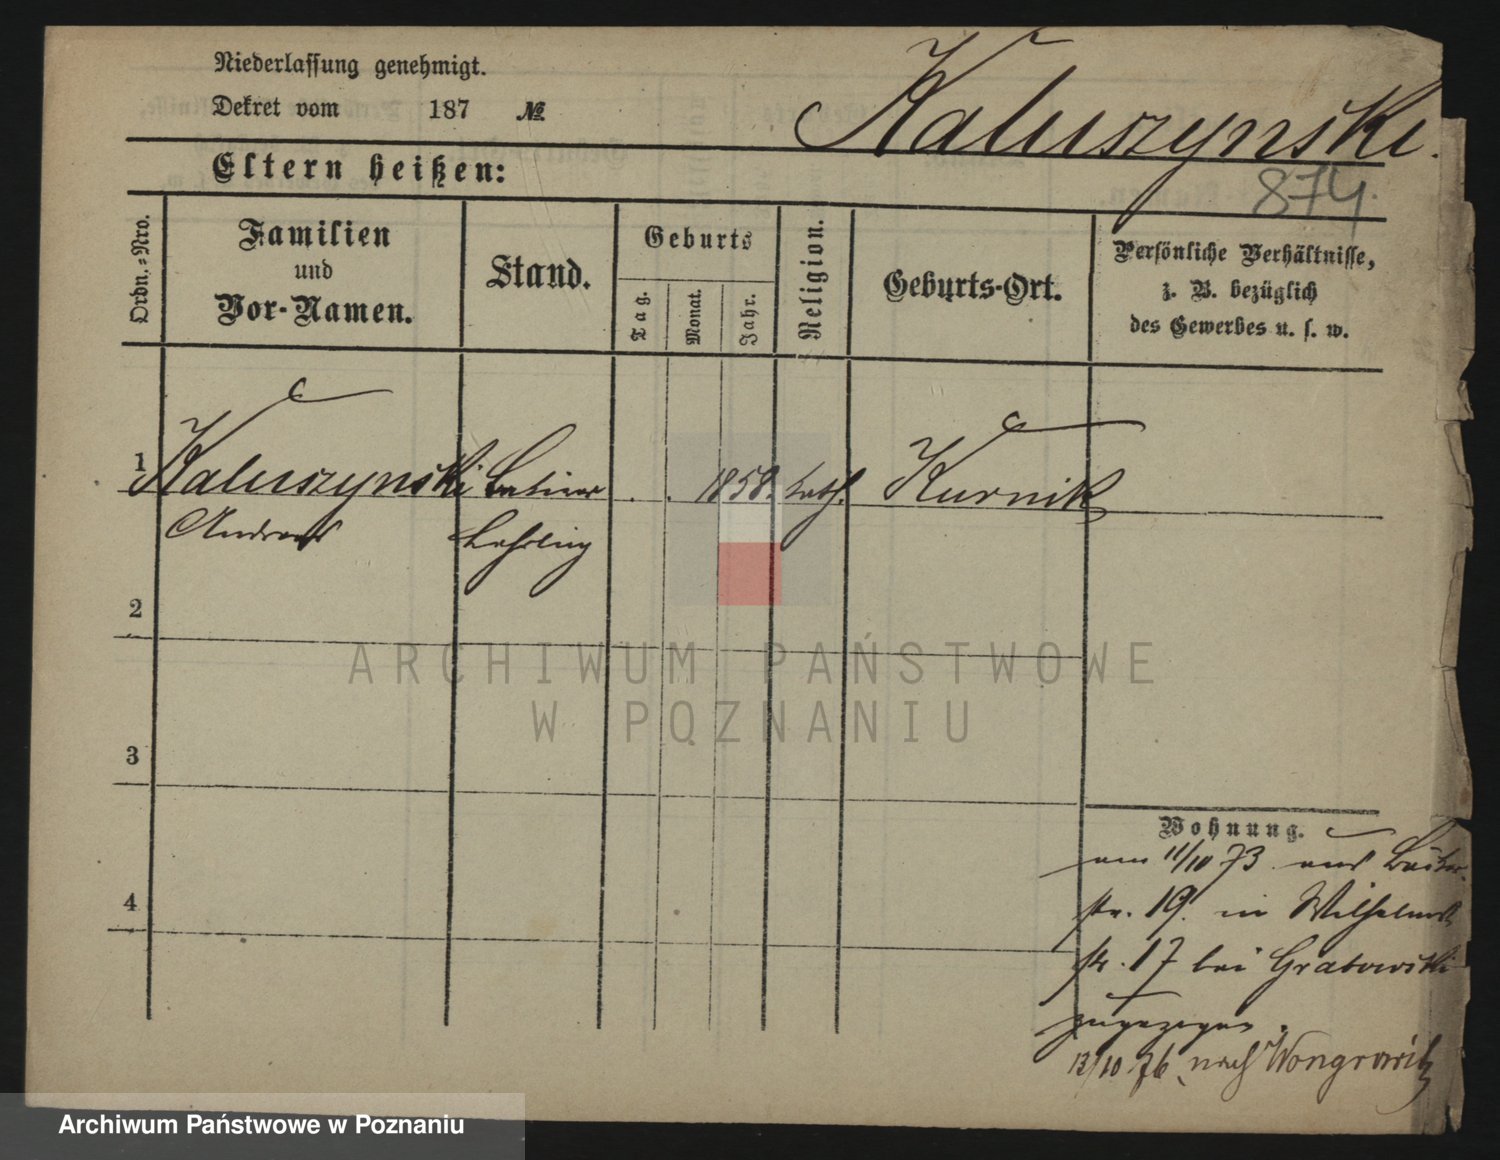 Niederlassung genehmigt.
Dekret vom 187 №
Kaluszynski.
874.
Eltern heißen:
Ordn.-Nro.
Familien
und
Vor-Namen.
Stand.
Geburts
Tag.
Monat.
Jahr.
Religion.
Geburts-Ort.
Persönliche Verhältnisse,
z. B. bezüglich
des Gewerbes u. s. w.
1 Kaluszynski 1858. kath. Kurnik
Andreas Lehrling
2
3
4
Wohnung.
am 11/10 73 aus Bäcker-
str. 19. in Wilhelms
str. 17 bei Grabowski
zugezogen.
12/10 76 nach Wongrowitz
ARCHIWUM PAŃSTWOWE
W POZNANIU
Archiwum Państwowe w Poznaniu